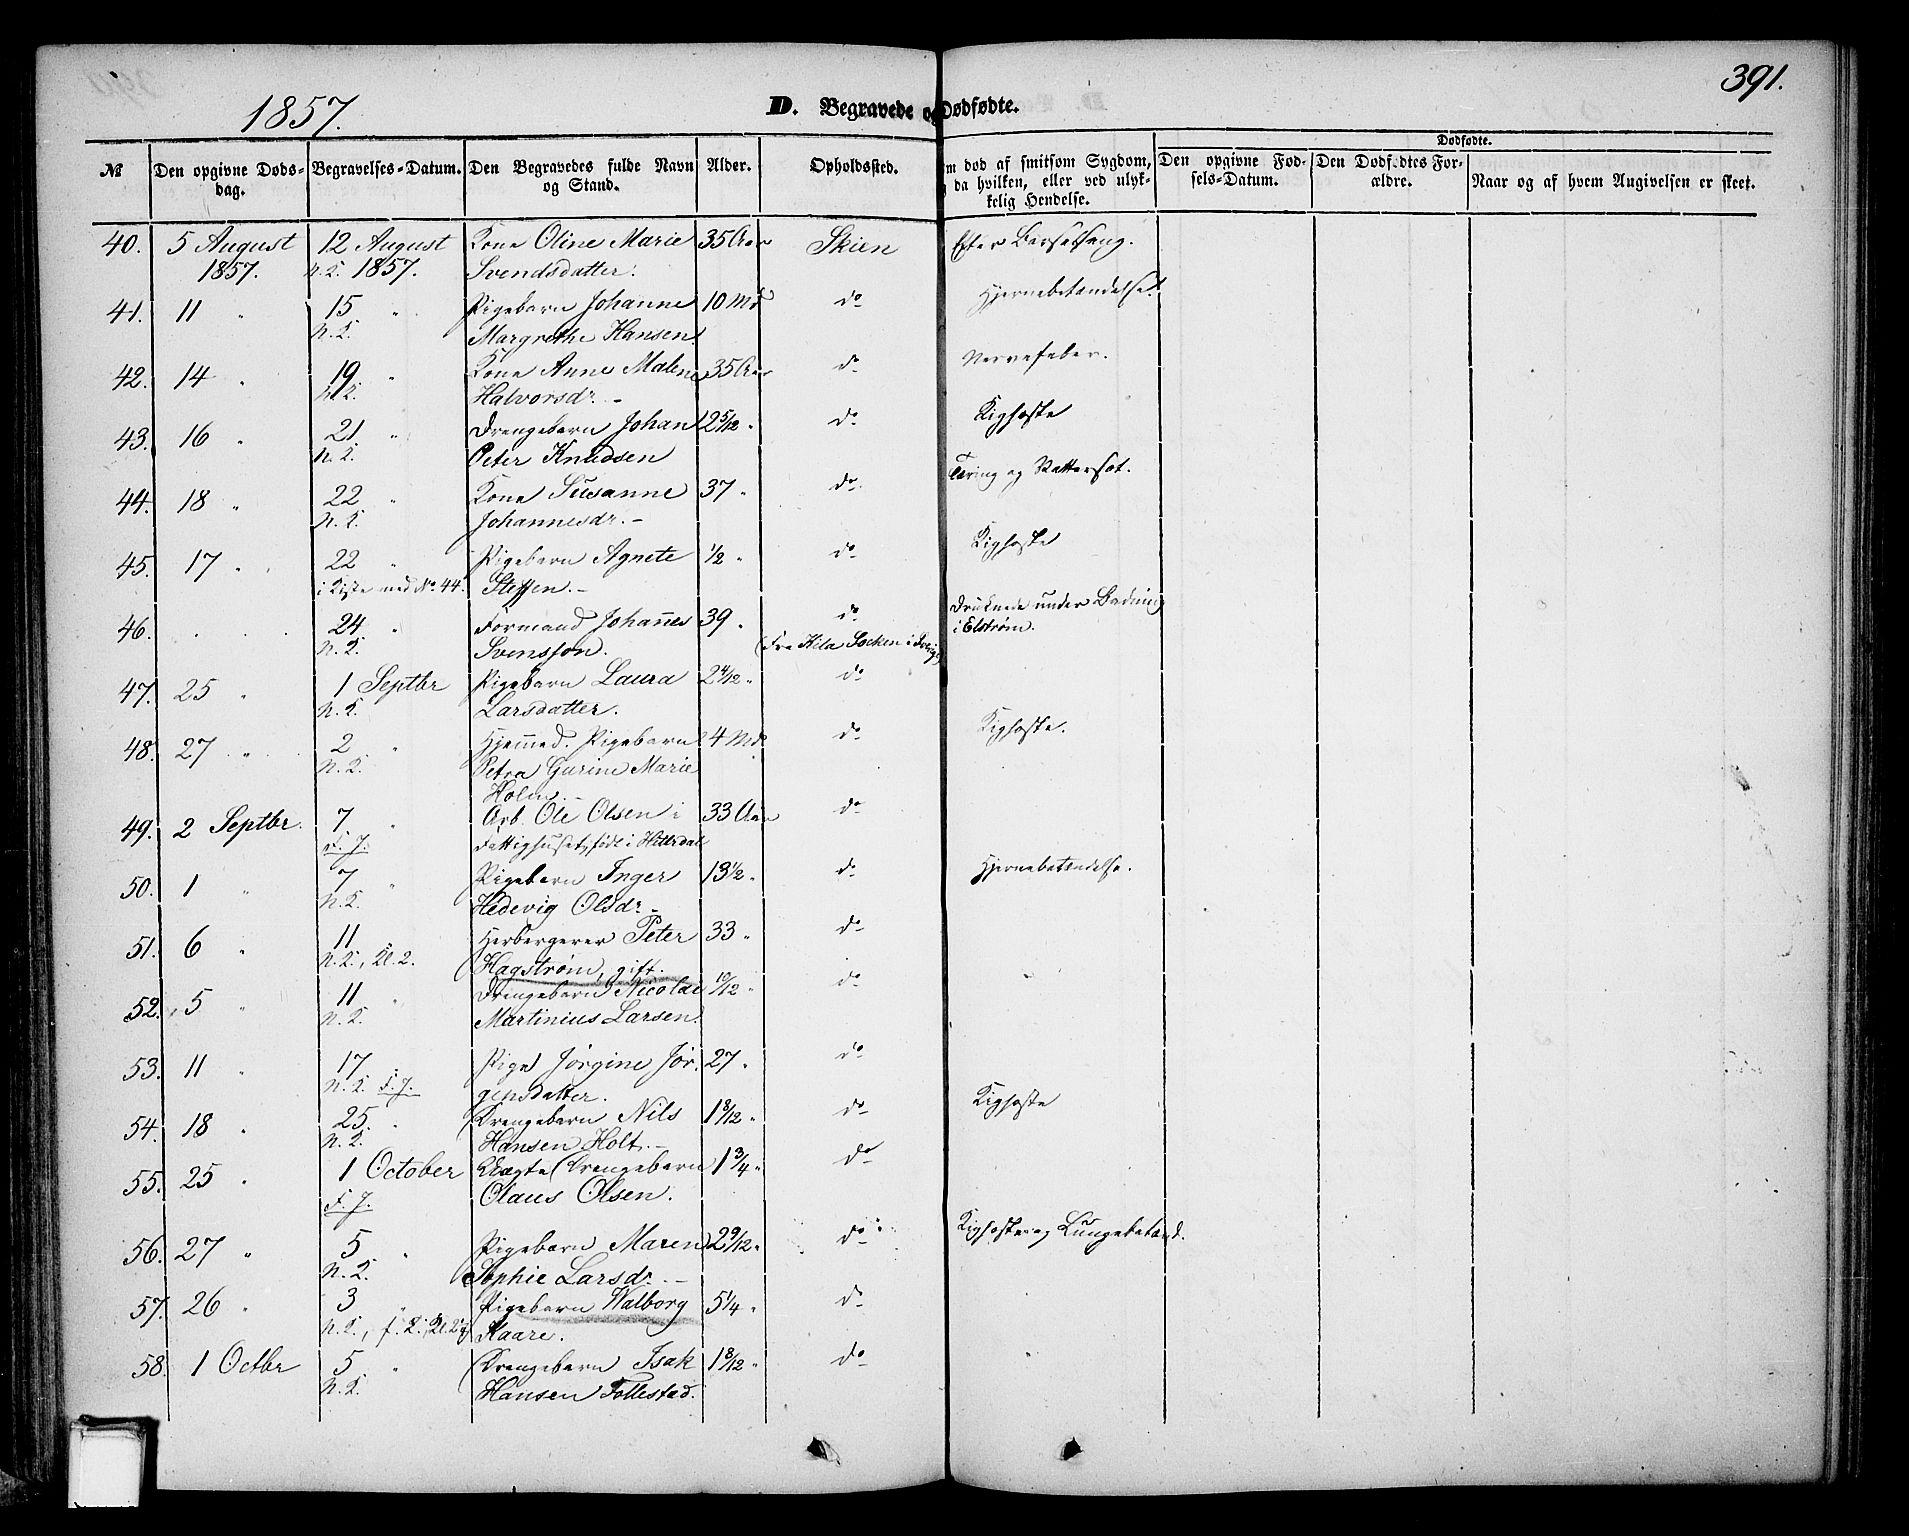 1857.
D. Begravede og Dødfødte.
391.
№
Den opgivne Døds-
dag.
Begravelses-Datum.
Den Begravedes fulde Navn
og Stand.
Alder.
Opholdssted.
m død af smitsom Sygdom,
g da hvilken, eller ved ulyk-
kelig Hendelse.
Dødfødte.
Den opgivne Fød-
sels-Datum.
Den Dødfødtes For-
ældre.
Naar og af hvem Angivelsen er skeet.
40. 5 August 12 August Kone Oline Marie 35 Aar Skien Efter Barselseng.
1857. n.K. 1857. Svendsdatter.
41. 11 " 15 " Pigebarn Johanne 10 Md do Hjernebetændelse.
N.K. Margrethe Hansen.
42. 14 " 19 " Kone Anne Malene 35 Aar do Nervefeber.
Halvorsdr. -
43. 16 " 21 " Drengebarn Johan 2 5/12 " do Kighoste
N.K. Peter Knudsen
44. 18 " 22 " Kone Susanne 37 " do Tæring og Vattersot.
N.K. Johannesdr. -
45. 17 " 22 " Pigebarn Agnete 1/2 " do Kighoste
i Kiste med No. 44. Steffen. -
46. . . . 24 " Formand Johannes 39 " do Druknede under Badning
N.K. Svensson. (fra Kila Socken i Sverige) i Elstrøm.
47. 25 " 1 Septbr Pigebarn Laura 2 4/12 " do
N.K. Larsdatter.
48. 27 " 2 " Hjemmed. Pigebarn 4 Md. do Kighoste.
N.K. Petra Gurine Marie
Holm. -
49. 2 Septbr. 7 " Arb. Ole Olsen i 33 Aar do
F.J. Fattighuset, født i Hitterdal
50. 1 " 7 " Pigebarn Inger 13 1/2 " do Hjernebetændelse.
N.K. Hedevig Olsdr. -
51. 6 " 11 Herbergerer Peter 33 " do
N.K., Kl. 2. Hagstrøm, gift.
52. 5 " 11 " Drengebarn Nicolai 10/12 " do
N.K. Martinius Larsen.
53. 11 " 17 Pige Jørgine Jør- 27 " do
N.K. F.J. gensdatter.
54. 18 " 25. " Drengebarn Nils 1 8/12 " do Kighoste
N.K. Hansen Holt. -
55. 25 " 1 October Uægte Drengebarn 1 3/4 " do
F.J. Olaus Olsen.
56. 27 " 5 " Pigebarn Maren 2 9/12 " do Kighoste og Lungebetænd.
N.K. Sophie Larsdr. -
57. 26 " 3 " Pigebarn Walborg 5 1/4 " do
N.K., Kaare.
58. 1 Octbr 5 " Drengebarn Isak 1 8/12 " do
N.K. Hansen Follestad.